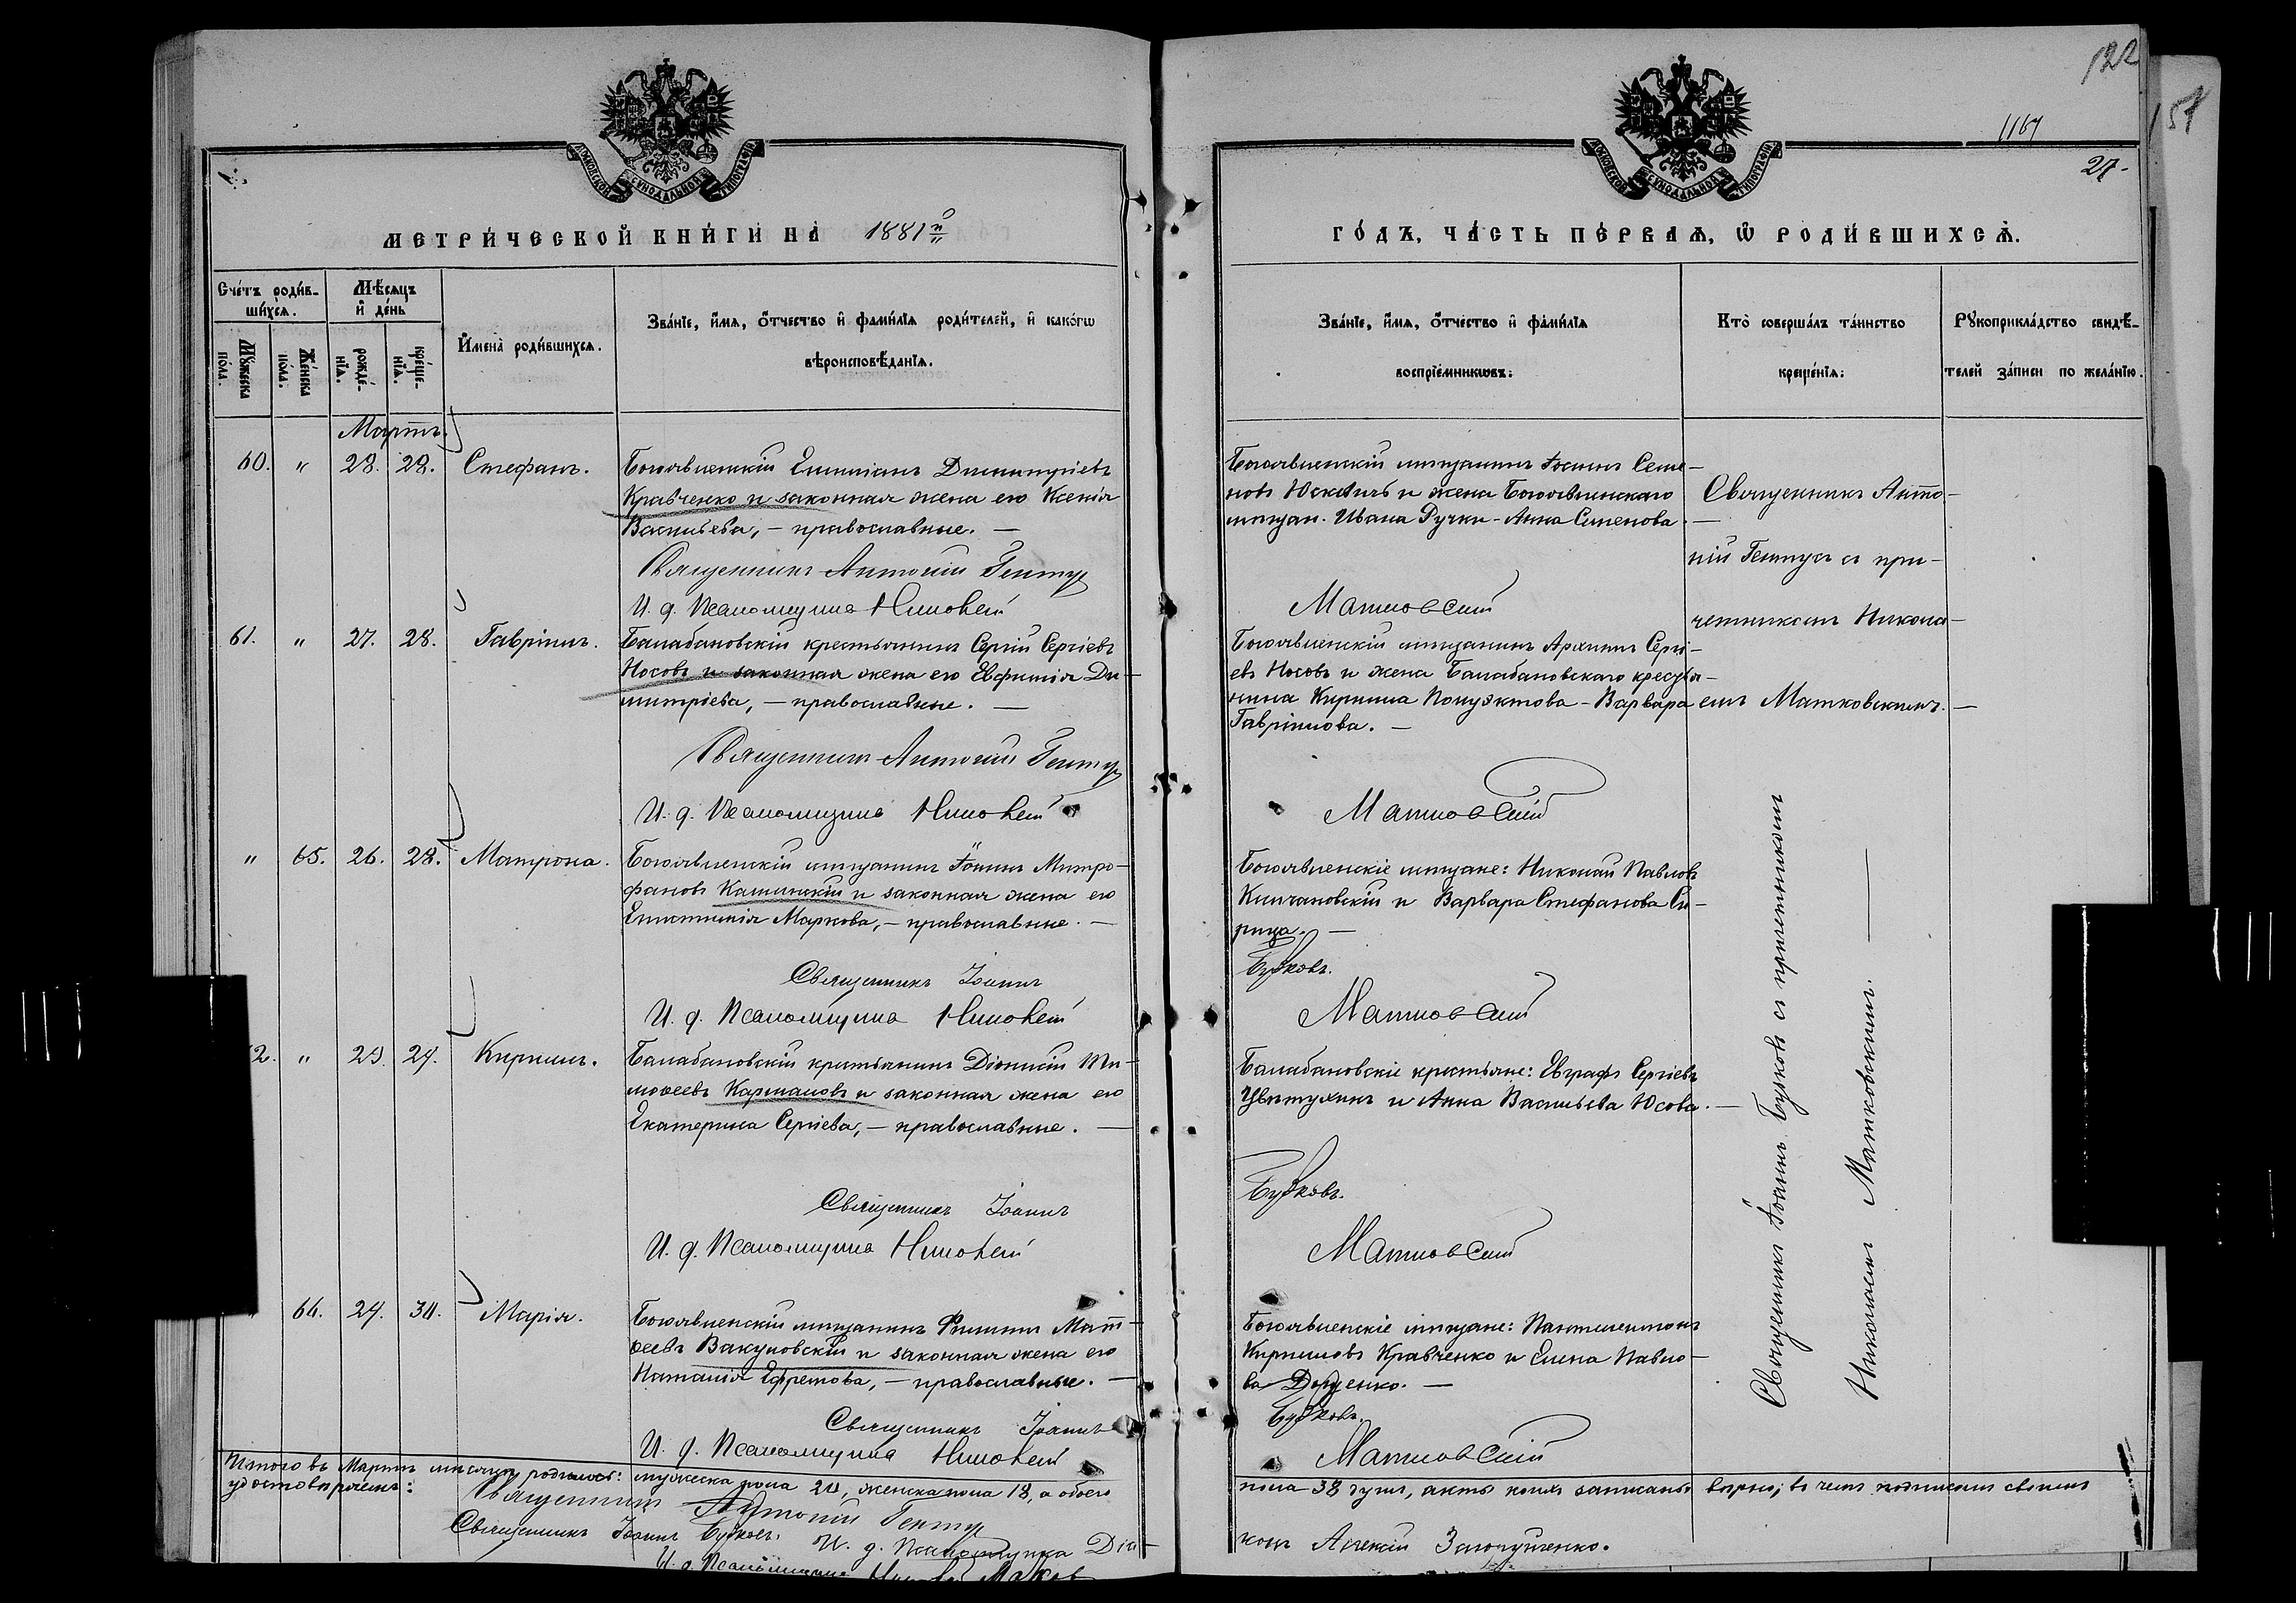 122
157
1167
27.
МОСКОВСКОЙ СѴНОДАЛЬНОЙ ТИПОГРАФІИ
МОСКОВСКОЙ СѴНОДАЛЬНОЙ ТИПОГРАФІИ
МЕТРИ́ЧЕСКОЙ КНИ́ГИ НА̀ 1881й
ГО́ДЪ, ЧА́СТЬ ПЕ́РВАѦ, Ѡ҆ РОДИ́ВШИХСѦ.
Сче́тъ роди́в-
ши́хсѧ.
Мꙋ́жеска по́ла.
Же́нска по́ла.
Мѣ́сѧцъ
и҆ де́нь
рожде́-нїѧ.
креще́-нїѧ.
И҆мена̀ роди́вшихсѧ.
Зва́нїе, и҆́мѧ, ѻ҆́тчество и҆ фами́лїѧ роди́телей, и҆ како́гѡ
вѣроисповѣ́данїѧ.
Зва́нїе, и҆́мѧ, ѻ҆́тчество и҆ фами́лїѧ
воспрїе́мникѡвъ:
Кто̀ соверша́лъ та́инство
креще́нїѧ:
Рꙋкоприкла́дство свидѣ́-
телей за́писи по жела́нїю.
Мартъ.
60. " 28. 28. Стефанъ.
Богоявленскій Емиліанъ Димитріевъ
Кравченко и законная жена его Ксенія
Васильева, – православные. –
Священникъ Антоній Гентуз
И. д. Псаломщика Николай
Богоявленскій мѣщанинъ Іоаннъ Семе-
новъ и жена Богоявленскаго
мѣщан. Ивана Ручки - Анна Семенова. –
Матковскій
Священникъ Анто-
ній съ при-
четникомъ Никола-
емъ Матковскимъ. –
61. " 27. 28. Гавріилъ.
Балабановскій крестьянинъ Сергій Сергіевъ
Носовъ и законная жена его Евфимія Ди-
митріева, – православные. –
Священникъ Антоній
И. д. Псаломщика Николай
Богоявленскій мѣщанинъ Архипъ Сергі-
евъ Носовъ и жена Балабановскаго крестья-
нина Кирилла Полуэктова - Варвара
Гавріилова. –
Матковскій
" 65. 26. 28. Матрона.
Богоявленскій мѣщанинъ Іоаннъ Митро-
фановъ Калинскій и законная жена его
Маркова, – православные. –
Священникъ Іоаннъ
И. д. Псаломщика Николай
Богоявленскіе мѣщане: Николай Павловъ
Килчановскій и Варвара Стефанова Си-
рица. –
Бузковъ.
Матковскій
2. " 23. 24. Кириллъ.
Балабановскій крестьянинъ Діонисій Ти-
моѳеевъ Кармановъ и законная жена его
Екатерина Сергіева, – православные. –
Священникъ Іоаннъ
И. д. Псаломщика Николай
Балабановскіе крестьяне: Евграфъ Сергіевъ
Цвѣтухинъ и Анна Васильева Юсова. –
Бузковъ.
Матковскій
Священникъ Іоаннъ Бузковъ съ причетникомъ
Николаемъ Матковскимъ. –
66. 24. 30. Марія.
Богоявленскій мѣщанинъ Филиппъ Мат-
ѳеевъ Вакуловскій и законная жена его
Наталія Ефремова, – православные. –
Священникъ Іоаннъ
И. д. Псаломщика Николай
Богоявленскіе мѣщане: Пантелеимонъ
Кирилловъ Кравченко и Елена Павло-
ва Доценко. –
Бузковъ.
Матковскій
Итого въ Мартѣ мѣсяцѣ родилось: мужеска пола 20, женска пола 18, а обоего
пола 38 душъ, акты коихъ записаны вѣрно; въ чемъ подписомъ своимъ
удостовѣряемъ:
Священникъ Антоній
Священникъ Іоаннъ Бузковъ. И. д. Псаломщика Діа-
конъ Алексій
И. д. Псаломщика